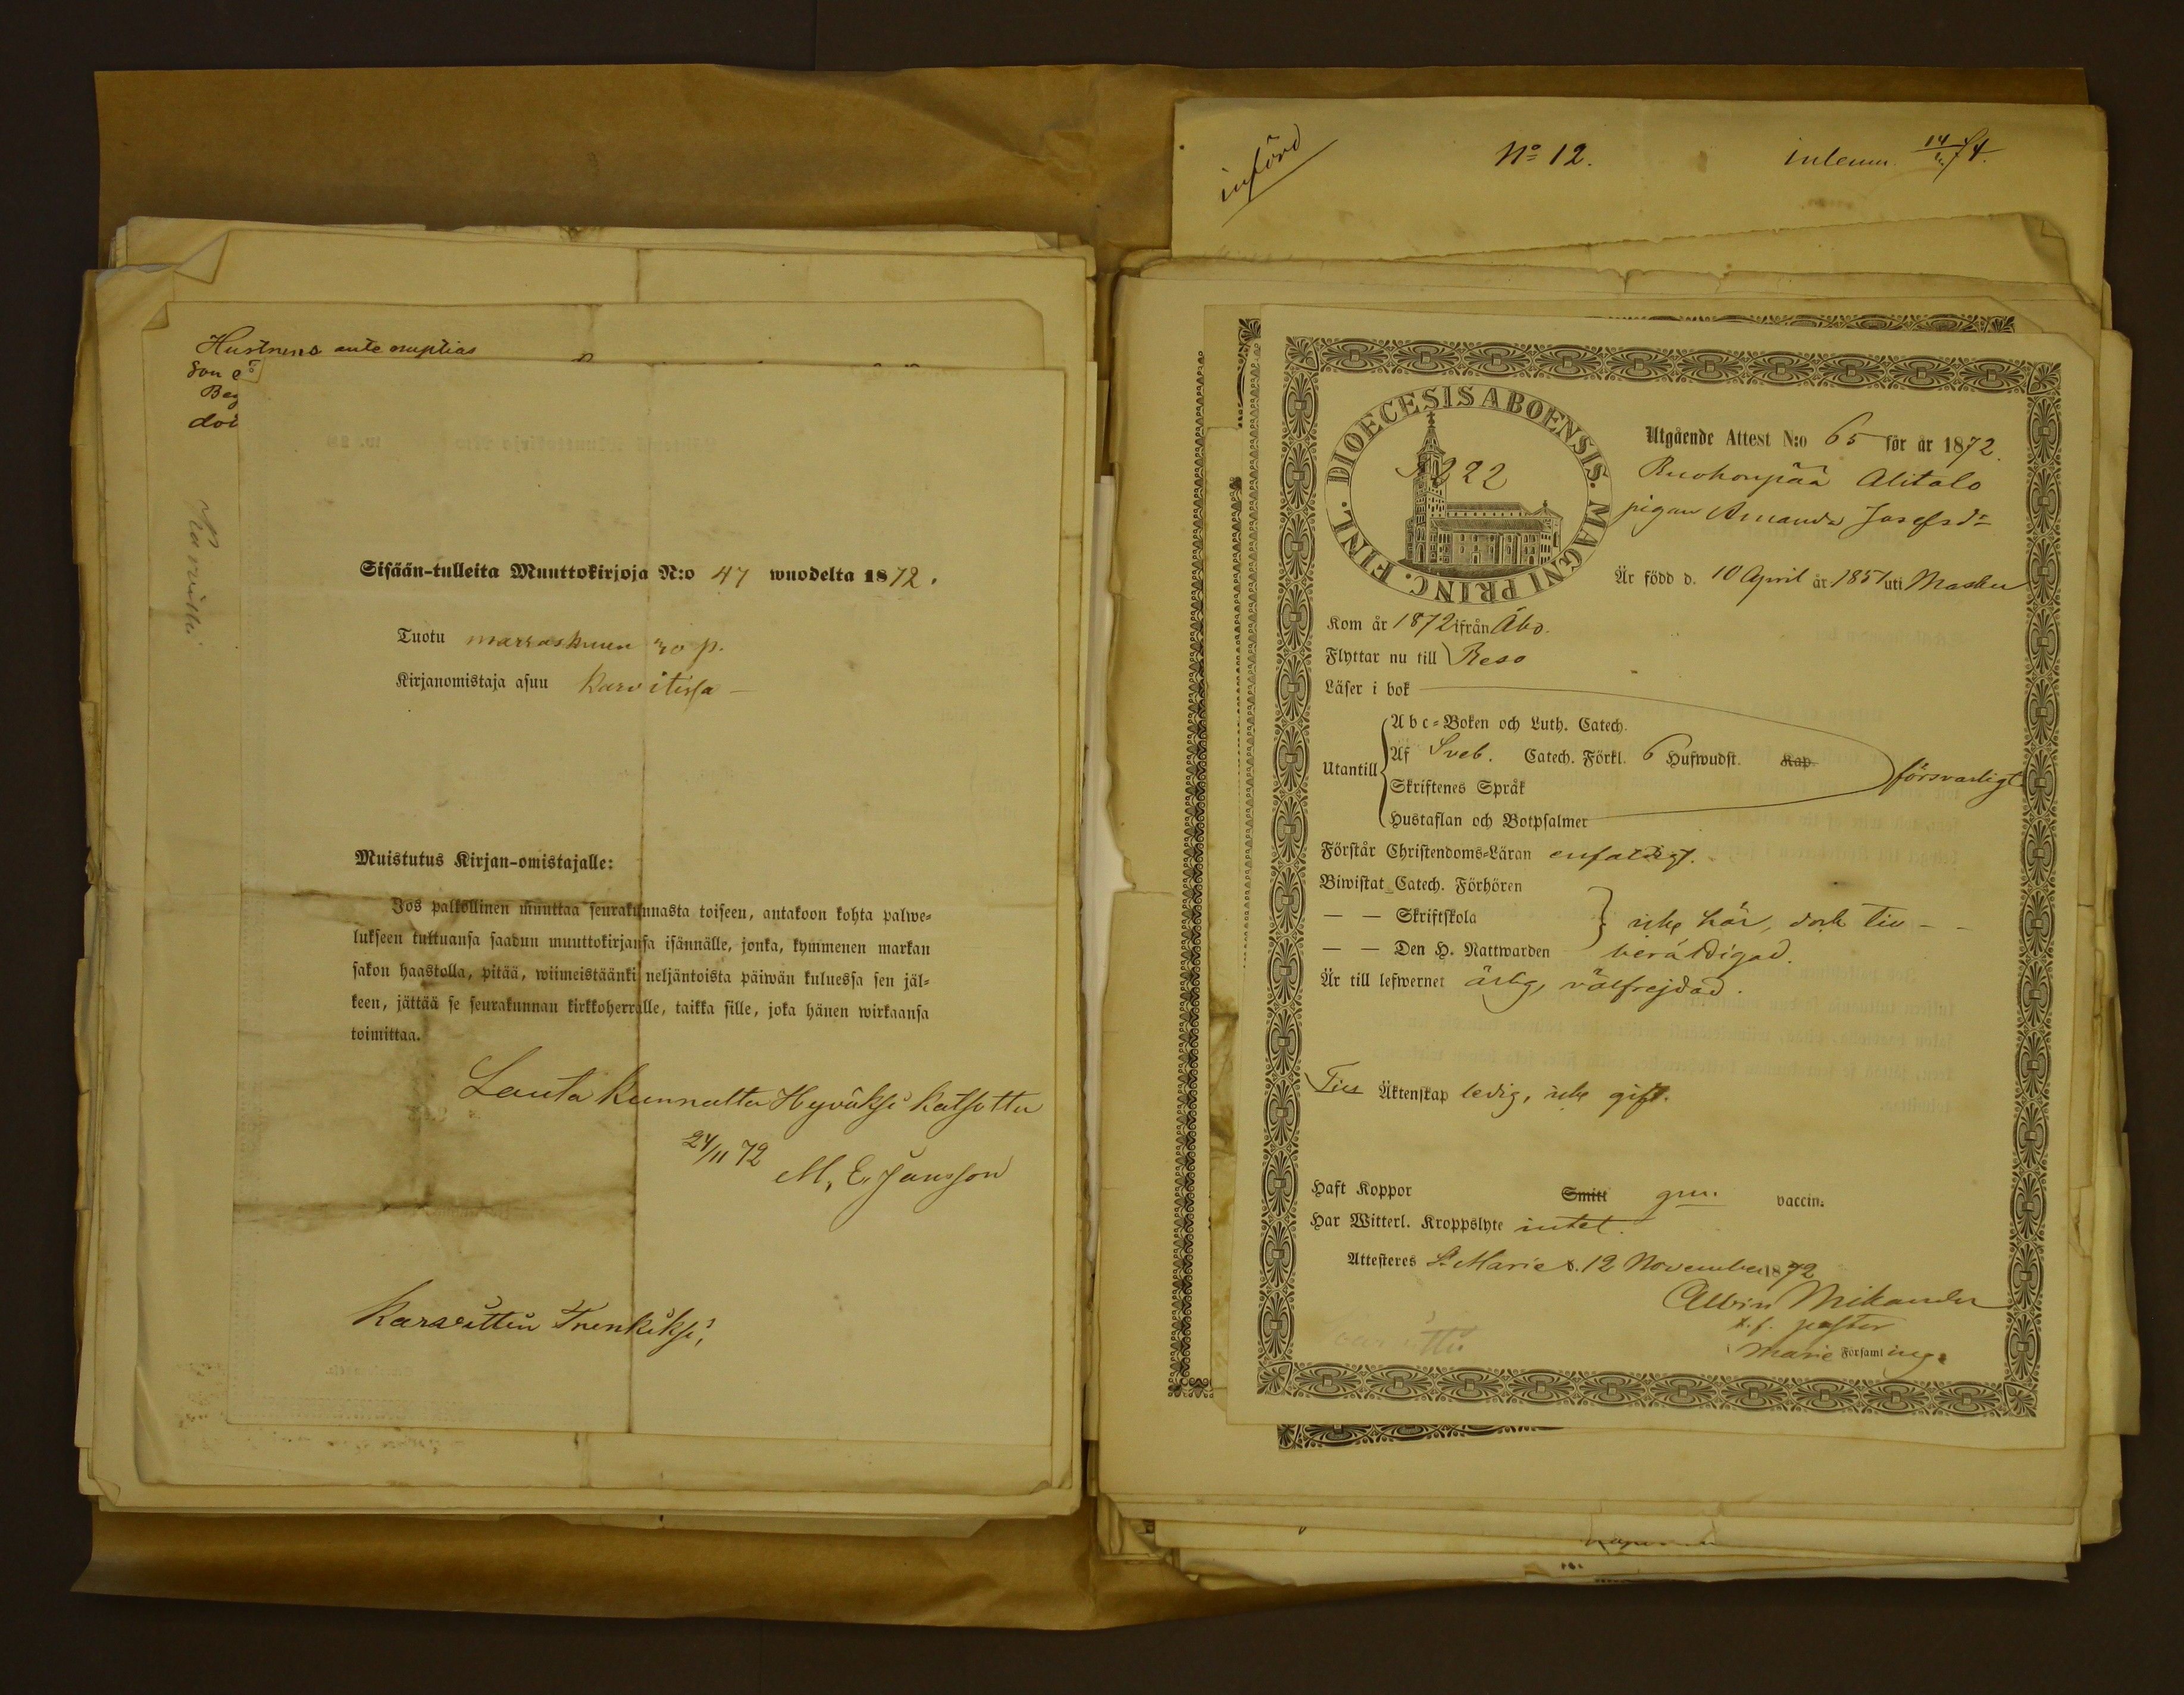 Hustruns ante nuptias
Son
Beg
dot
Sisään-tulleita Muuttokirjoja N:o 47 wuodelta 1872.
Tuotu marraskuun 30 p.
Kirjanomistaja asuu Karvitissa
Muistutus Kirjan-omistajalle:
Jos palkollinen muuttaa seurakunnasta toiseen, antakoon kohta palwe=
lukseen tultuansa saadun muuttokirjansa isännälle, jonka, kymmenen markan
sakon haastolla, pitää, wiimeistäänki neljäntoista päiwän kuluessa sen jäl=
keen, jättää se seurakunnan kirkkoherralle, taikka sille, joka hänen wirkaansa
toimittaa.
Lauta kunnalta Hyväksi katsottu
24/11 72
M, E, Jansson
Karvittiin Trenkiksi,
införd
No 12.
inlemn. 14/74.
DIOECESIS ABOENSIS. MAGNI PRINC. FINL.
222
Utgående Attest N:o 65 för år 1872.
Ruohonpää Alitalo
pigan Amanda Josefsdr
Är född d. 10 April år 1851 uti Masku
Kom år 1872 ifrån Åbo.
Flyttar nu till Reso
Läser i bok
Utantill
Abc=Boken och Luth. Catech.
Af Sveb. Catech. Förkl. 6 Hufwudst. Kap.
Skriftenes Språk
Hustaflan och Botpsalmer
försvarligt
Förstår Christendoms=Läran enfaldigt.
Biwistat Catech. Förhören
— — Skriftskola
— — Den H. Nattwarden
icke här, dock till-
berättigad.
Är till lefwernet ärlig, välfrejdad.
Till Äktenskap ledig, icke gift.
Haft Koppor Smitt gm. vaccin.
Har Witterl. Kroppslyte intet.
Attesteres St Marie d. 12 November 1872
Albin Mikander
t. f. pastor
Marie Församling.